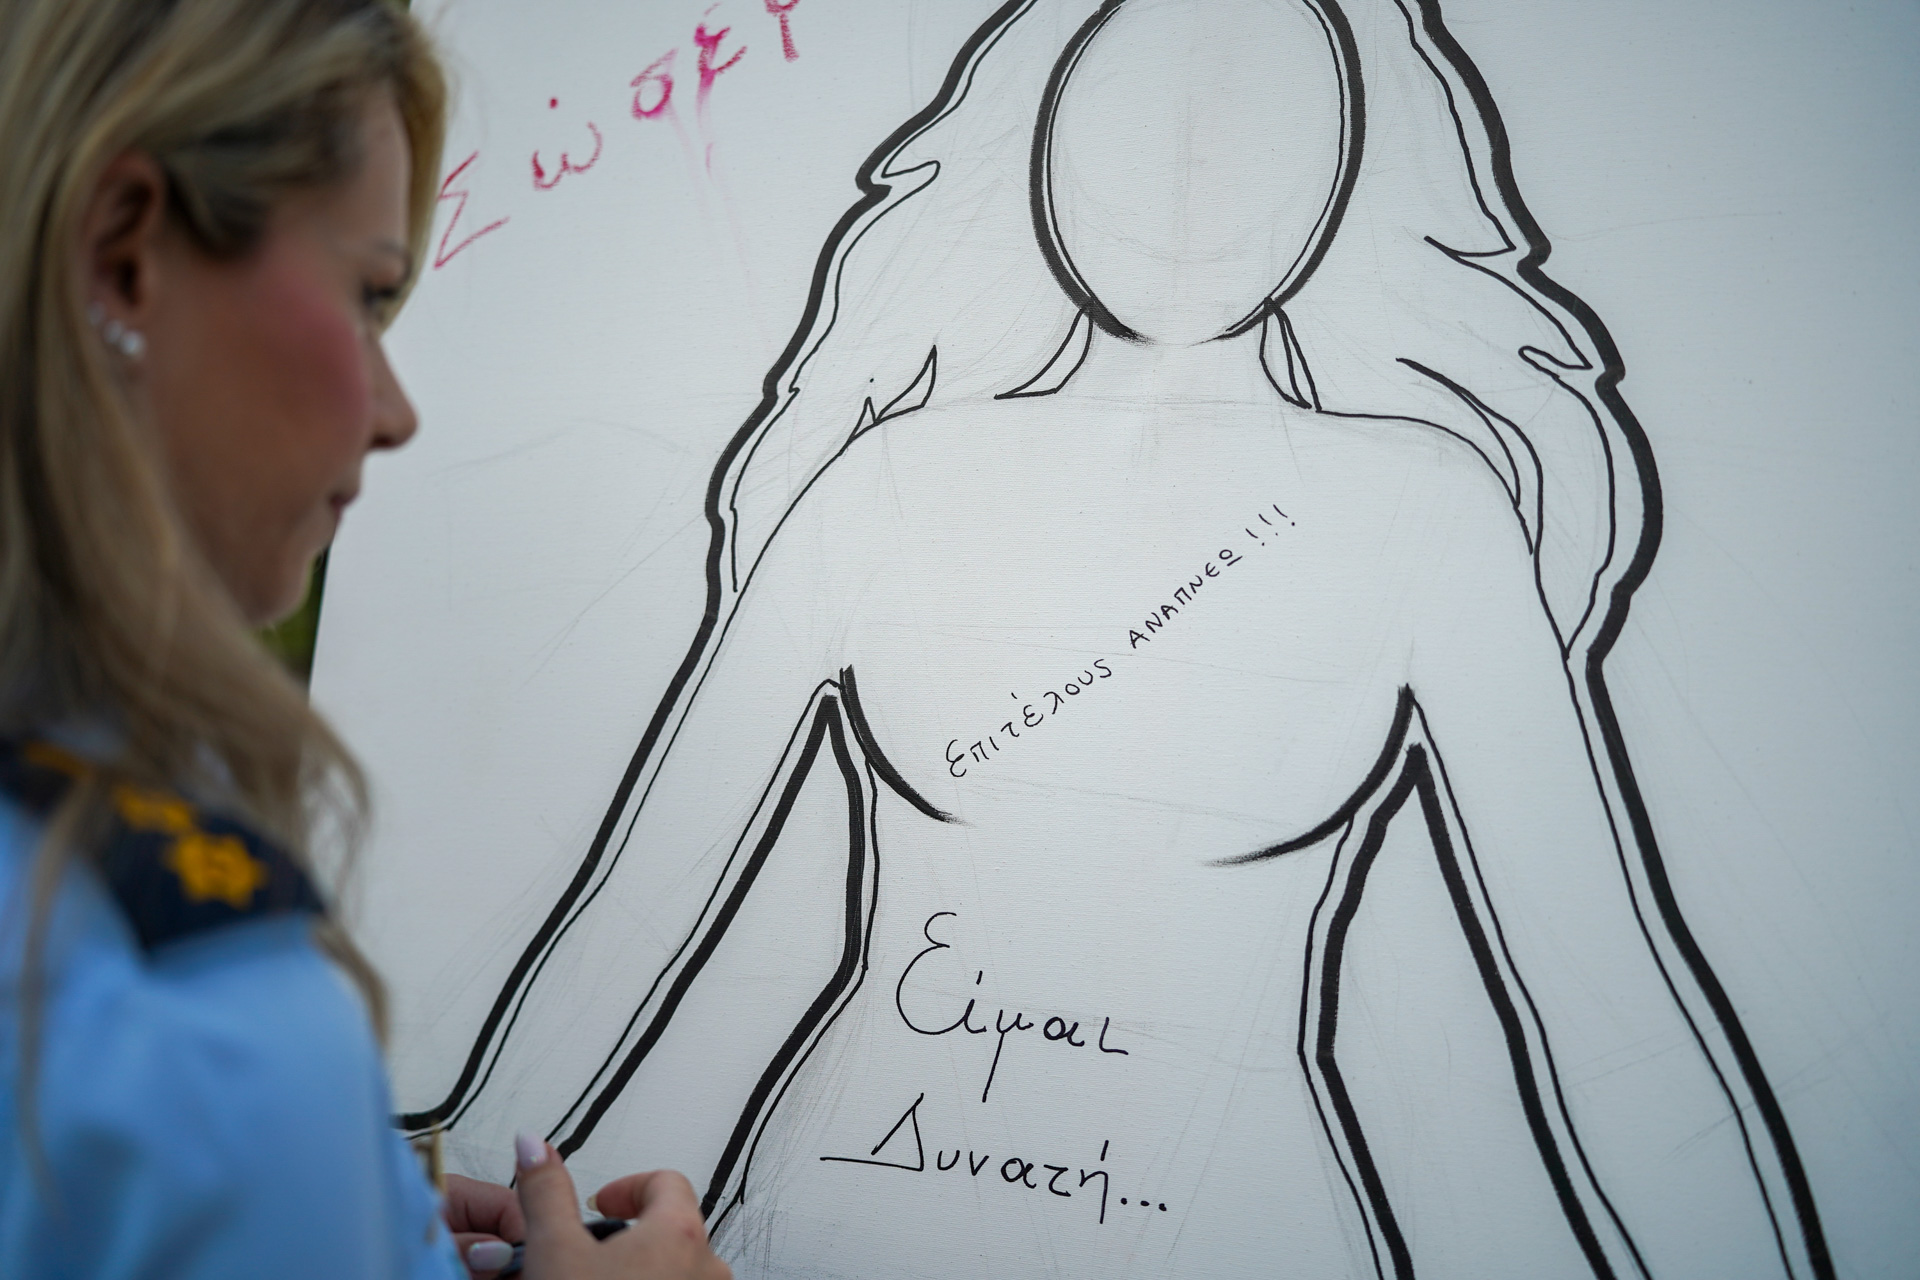 Σώσε
Επιτέλους ΑΝΑΠΝΕΩ!!!
Είμαι
Δυνατή...